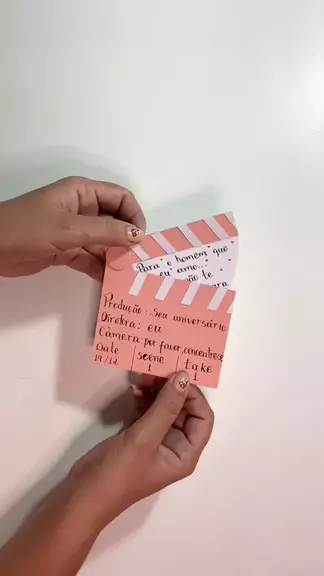 Para o homem que
eu amo...
te
Produção: Seu aniversário
Diretora: eu
Câmera: por favor, concentre-se
Date scene take
19/12 1 1